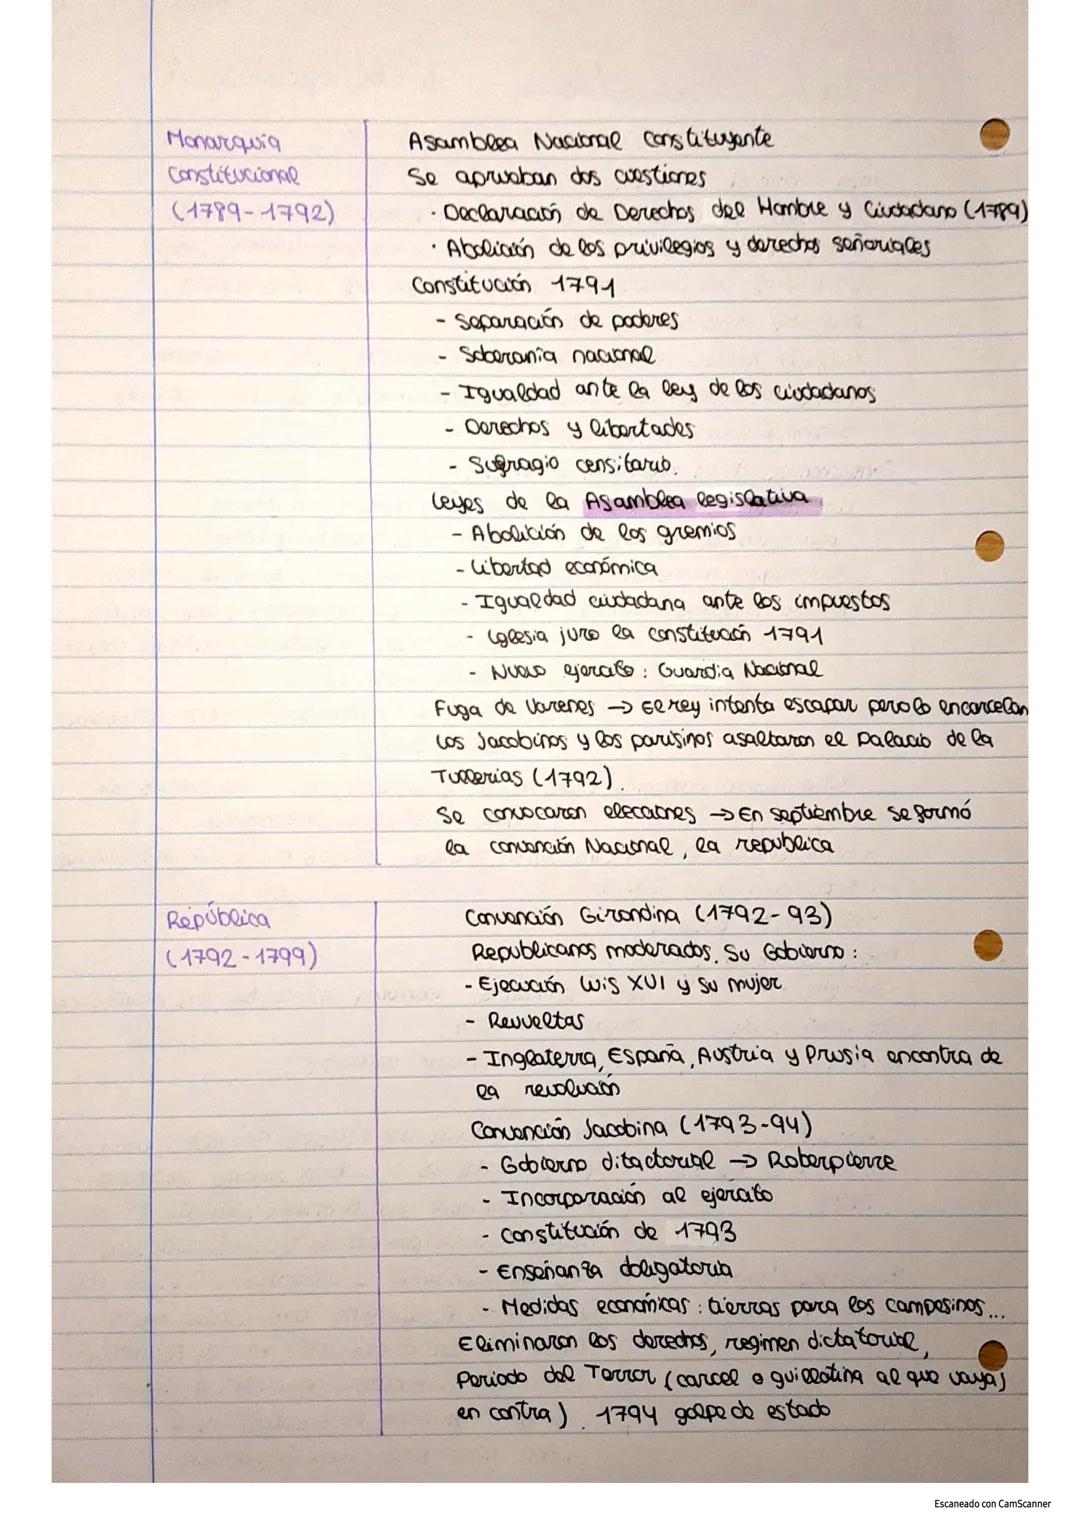 Monarquía
Constitucional
(1789-1792)
Asamblea Nacional Constituyente
Se aprueban dos cuestiones
· Declaración de Derechos del Hombre y Ciudadano (1789)
· Abolición de los privilegios y derechos señoriales
Constitución 1791
- Separación de poderes
- Soberanía nacional
- Igualdad ante la ley de los ciudadanos
- Derechos y libertades
- Sufragio censitario.
Leyes de la Asamblea legislativa
- Abolición de los gremios
- Libertad económica
- Igualdad ciudadana ante los impuestos
- Iglesia juro la constitución 1791
- Nuevo ejercito: Guardia Nacional
Fuga de Varenes → El rey intenta escapar pero lo encarcelan
Los Jacobinos y los parisinos asaltaron el Palacio de la
Tullerias (1792).
Se convocaron elecciones → En septiembre se formó
la convención Nacional, la republica
República
(1792-1799)
Convención Girondina (1792-93)
Republicanos moderados. Su Gobierno:
- Ejecución Luis XVI y su mujer
- Revueltas
- Inglaterra, España, Austria y Prusia encontra de
la revolución
Convención Jacobina (1793-94)
- Gobierno ditactorial → Roberpierre
- Incorporación al ejercito
- Constitución de 1793
- Enseñanza obligatoria
- Medidas económicas: tierras para los campesinos...
Eliminaron los derechos, regimen dictatorial,
Periodo del Terror (carcel o guillotina al que vaya
en contra). 1794 golpe de estado
Escaneado con CamScanner